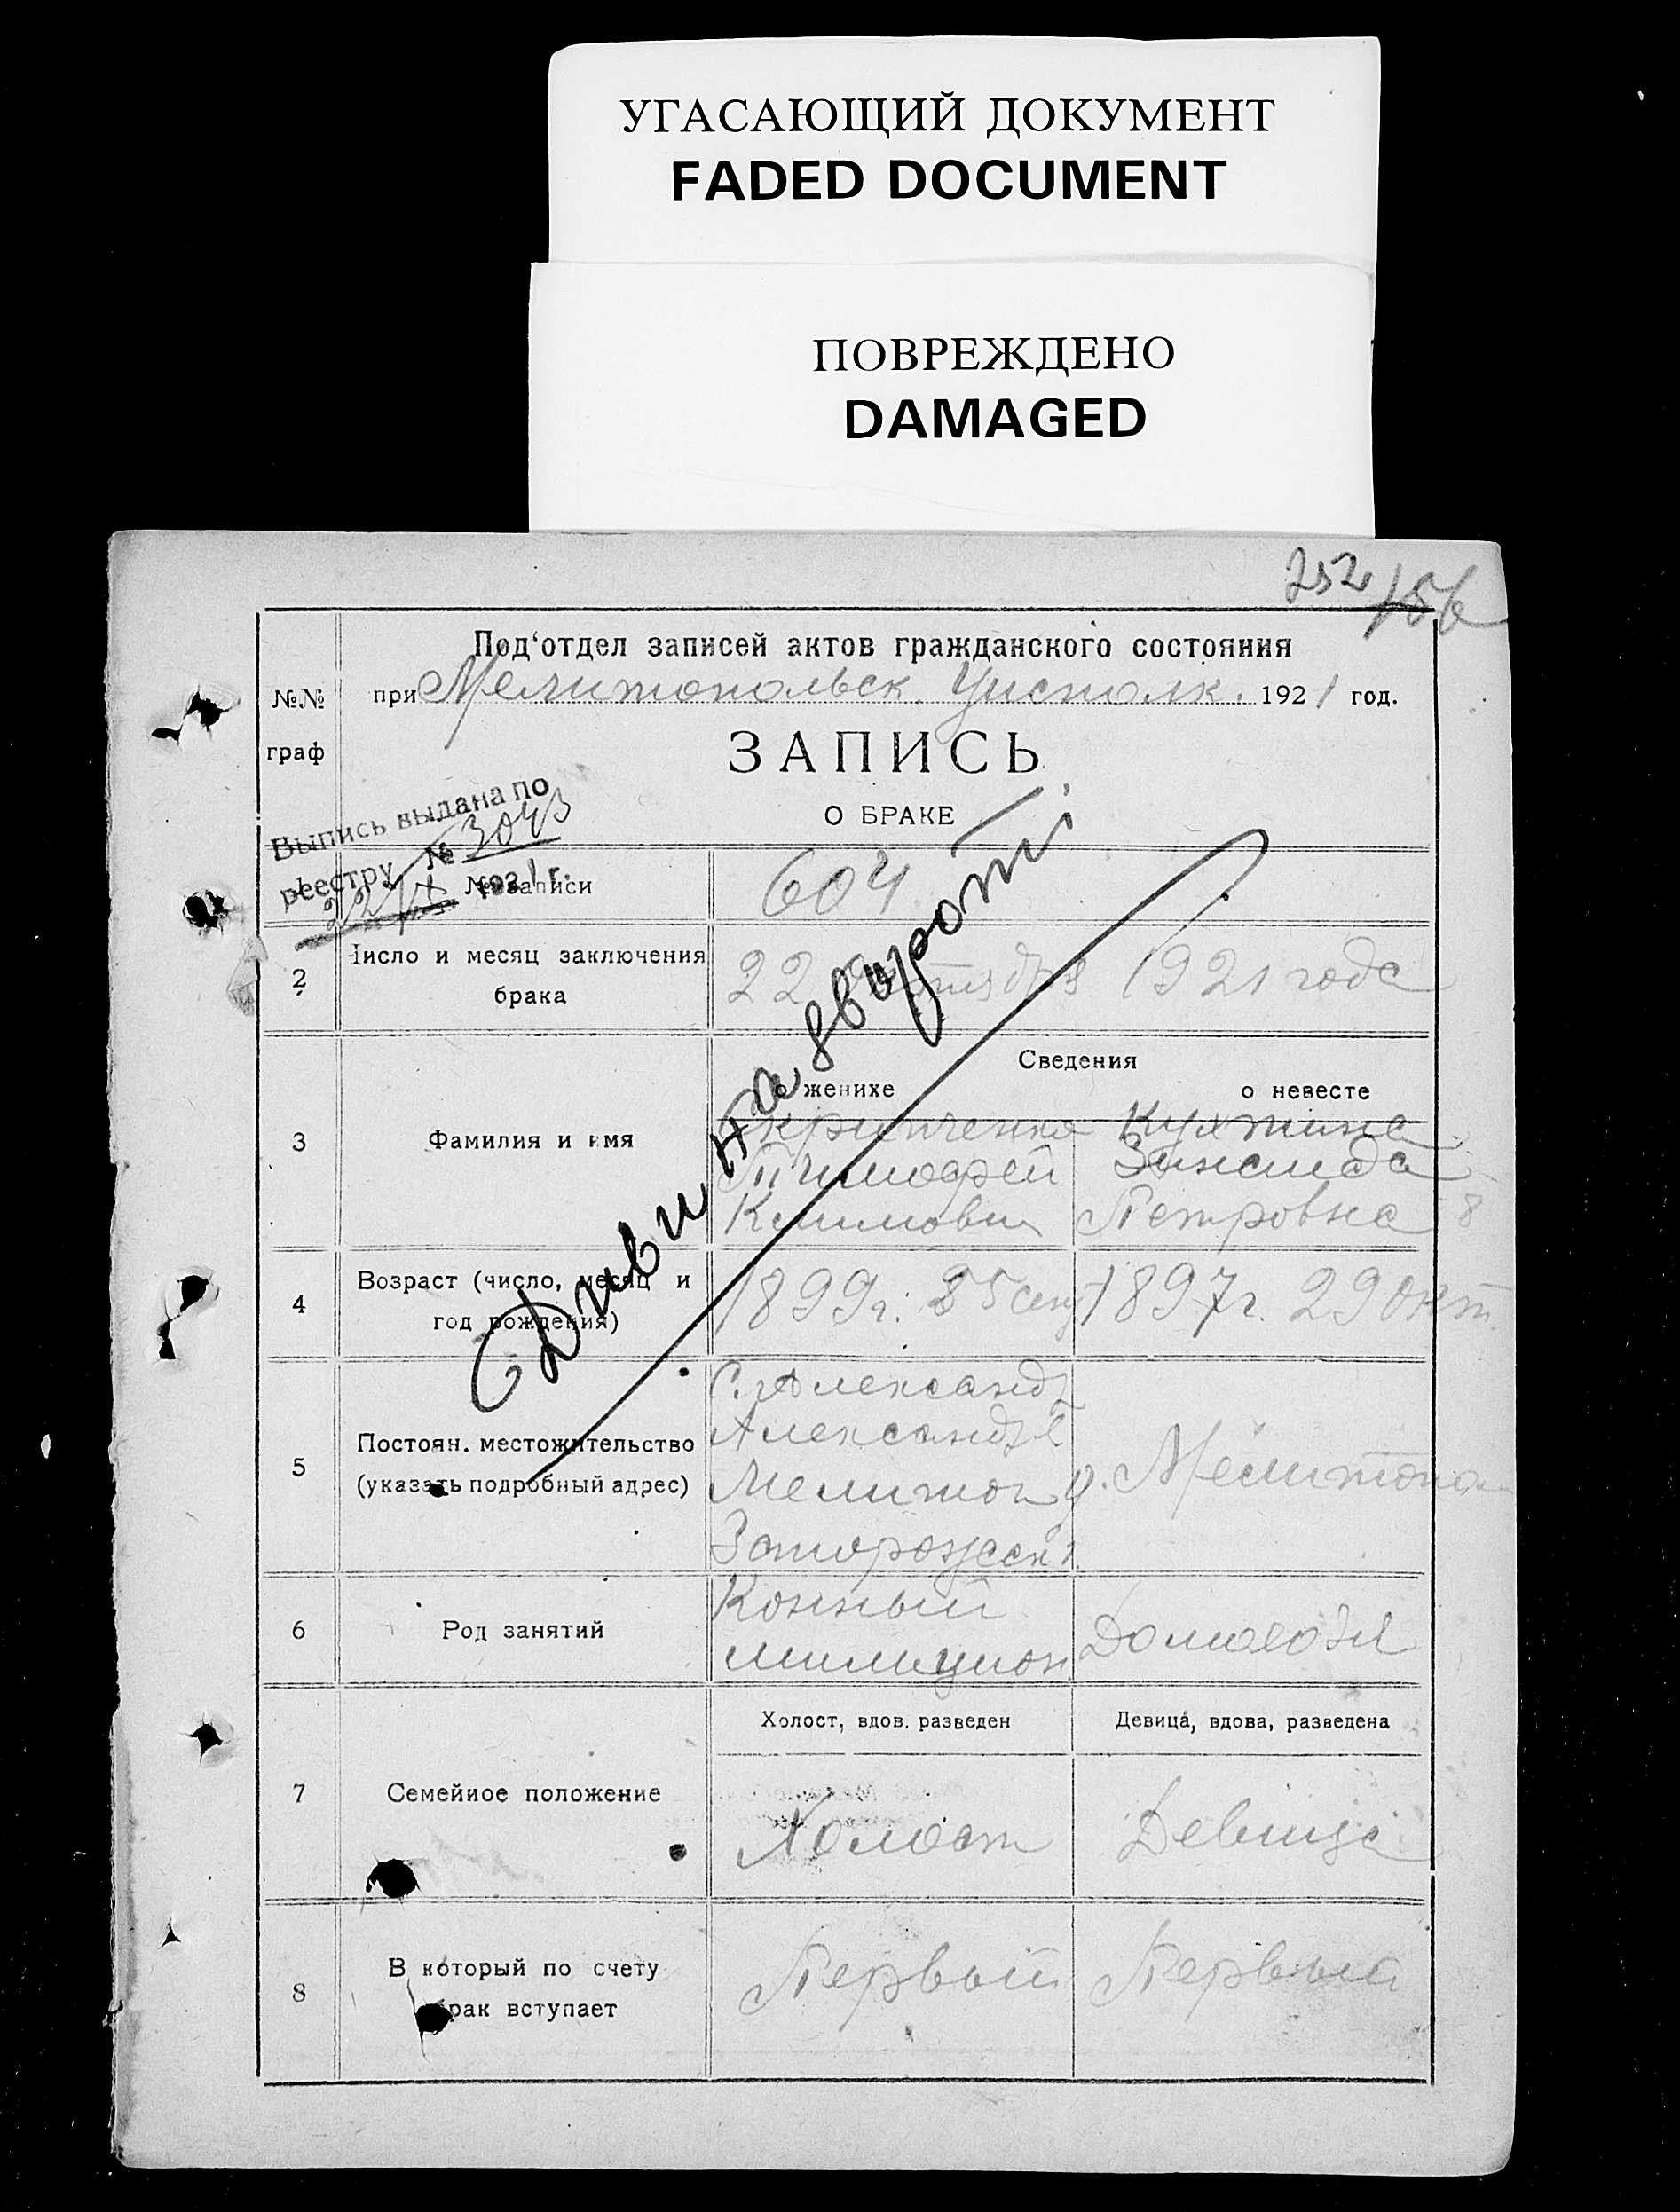 УГАСАЮЩИЙ ДОКУМЕНТ
FADED DOCUMENT
ПОВРЕЖДЕНО
DAMAGED
252 156
Под‘отдел записей актов гражданского состояния
№№ граф
при Мелитопольск. Уисполк. 1921 год.
ЗАПИСЬ
О БРАКЕ
Выпись выдана по
реестру № 3043
22/ 1921 г.
№ записи 604
2 Число и месяц заключения брака
22 1921 года
Сведения
о женихе о невесте
3 Фамилия и имя
Скрипченко Кухтина
Тимофей Зинаида
Климович Петровна 8
Диви на звороті
4 Возраст (число, месяц и год рождения)
1899г. 25 сент 1897г. 29 окт.
5 Постоян. местожительство (указать подробный адрес)
С. Александр
Александр
Мелитоп
Запорожск
г. Мелитопол
6 Род занятий
Конный
милицион
Домохоз
7 Семейное положение
Холост, вдов. разведен Девица, вдова, разведена
Холост Девица
8 В который по счету брак вступает
Первый Первый